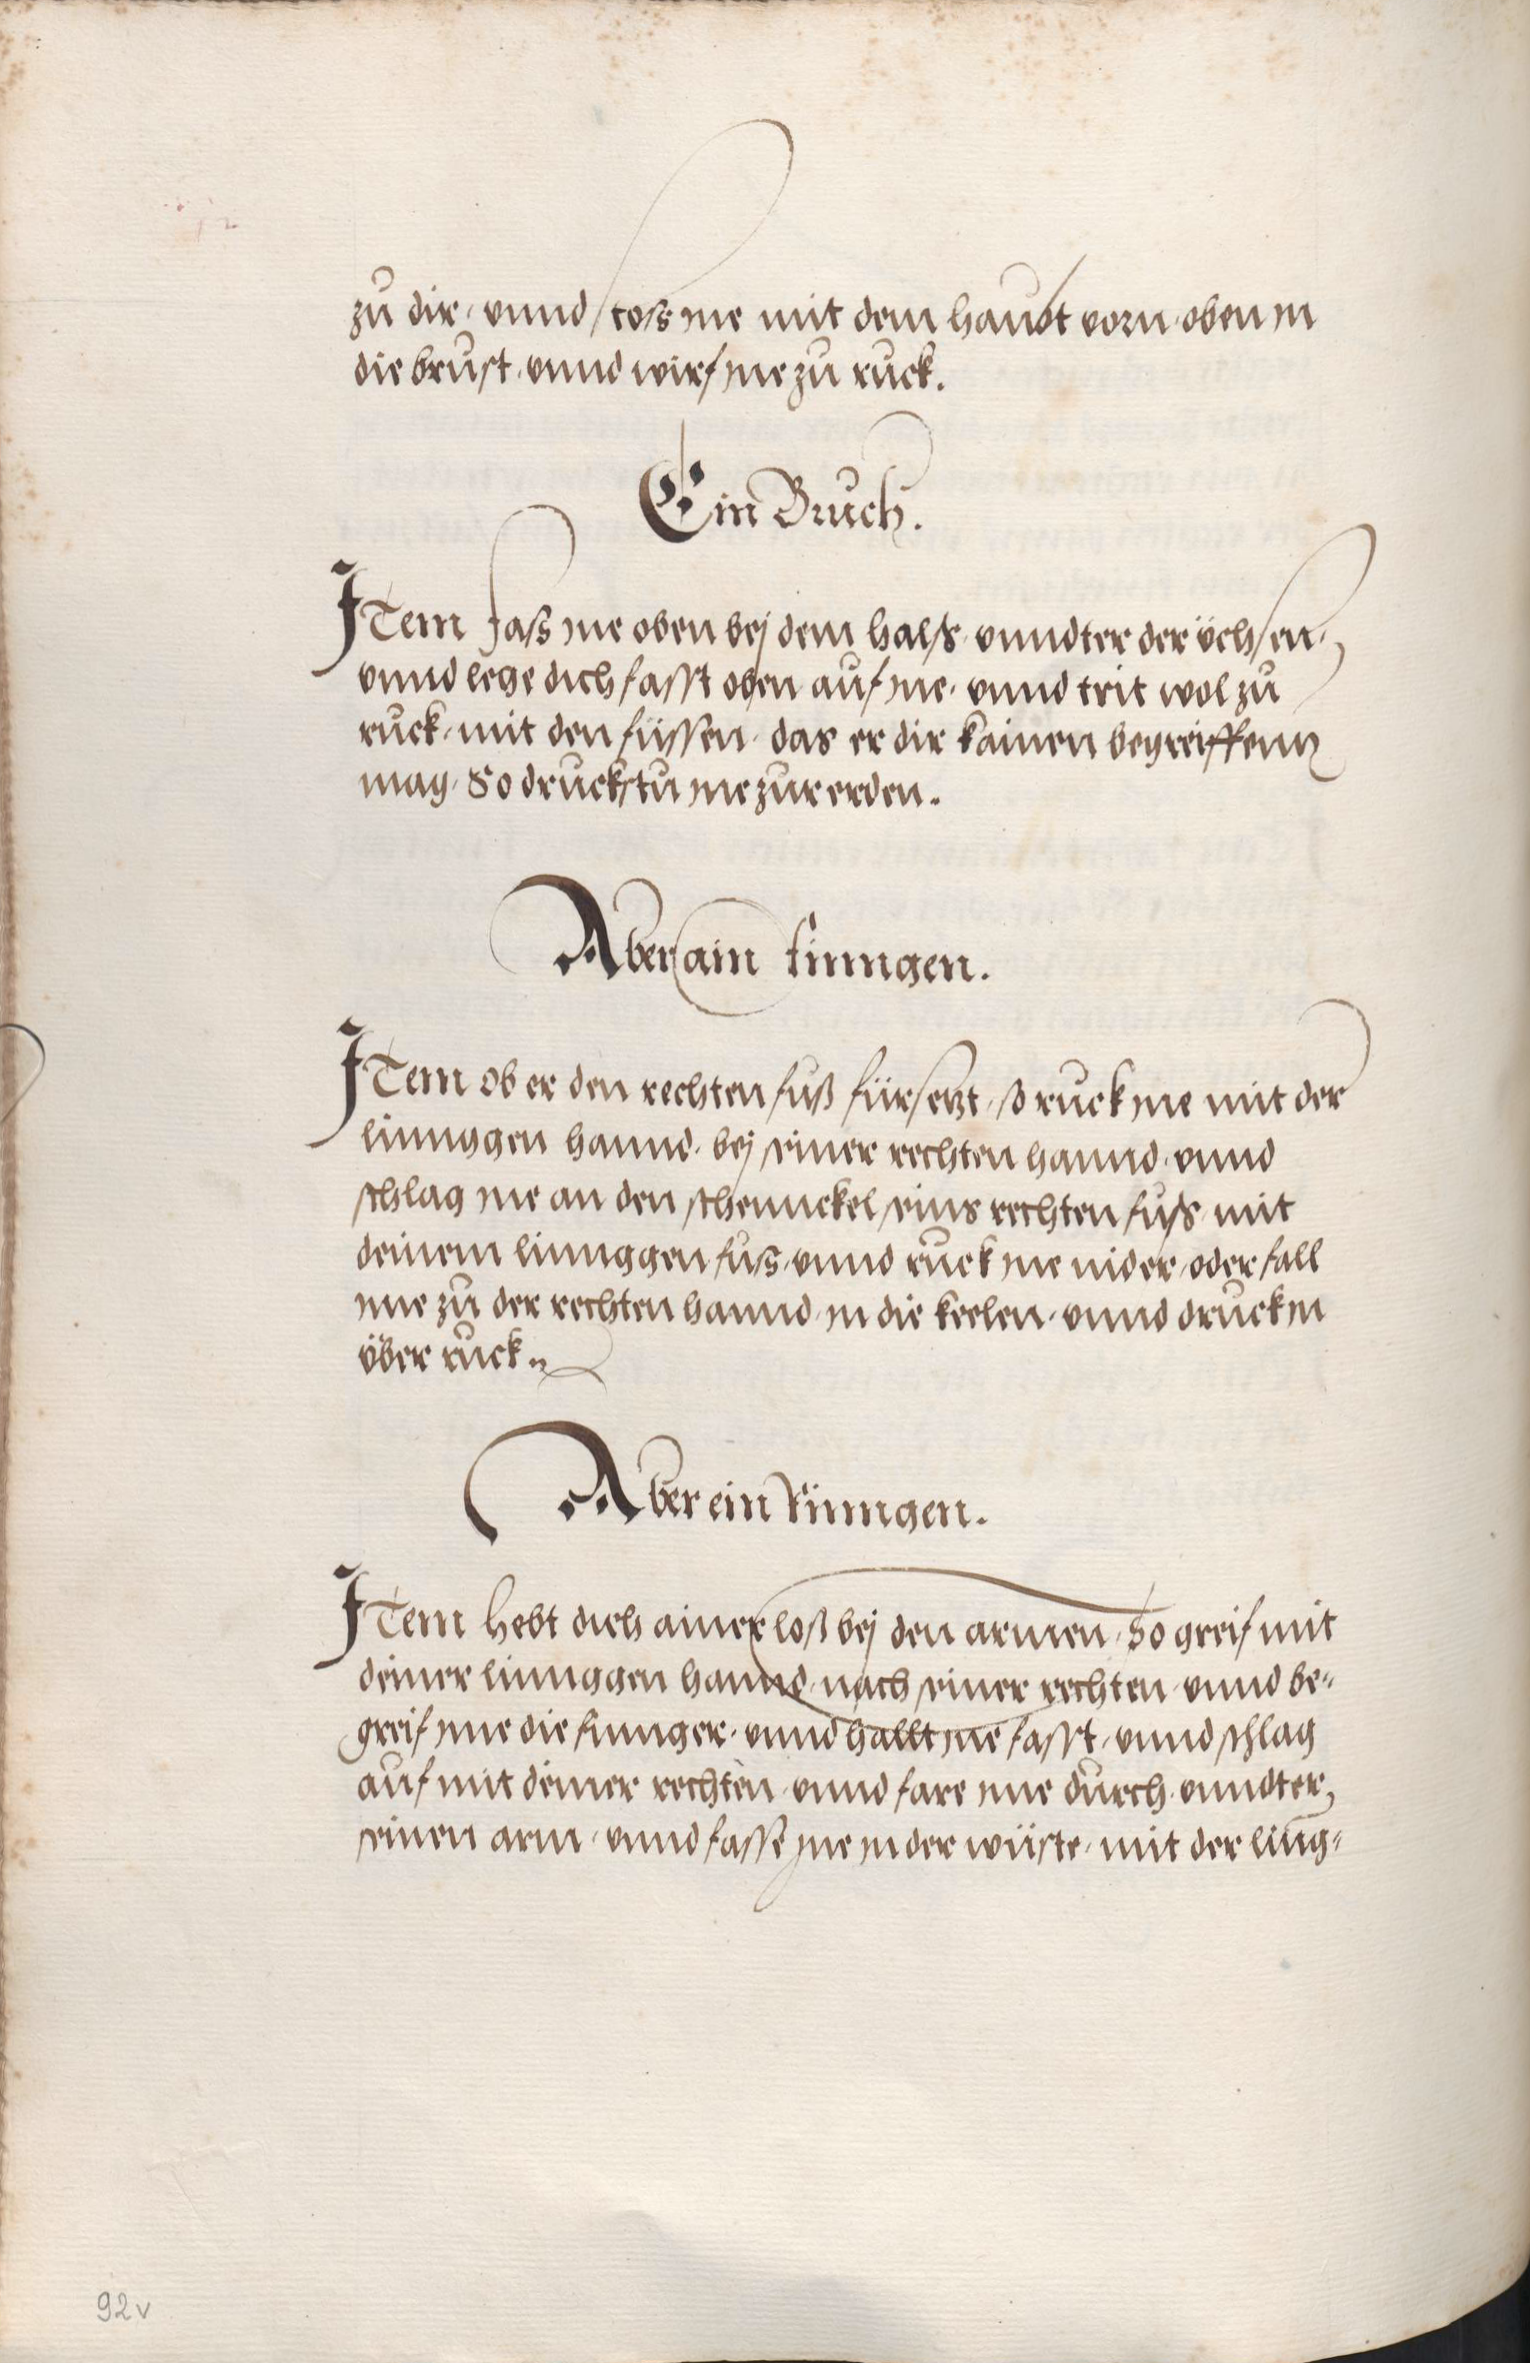 zu dir, vnnd stoss ine mit dem haubt vorn oben in
die brust, vnnd wirf ine zu ruck.
Ein Bruch.
ITem fass ine oben bej dem halss, vnndter der üchsen,
vnnd lege dich fasst oben auf ine, vnnd trit wol zu
ruck, mit den füssen, das er dir kainen begreiffenn
mag, So druckstu ine zur erden.
Aber ain Rinngen.
ITem ob er den rechten fuß fürsetzt, so ruck ine mit der
linnggen hannd, bej seiner rechten hannd, vnnd
schlag ine an den schennckel seins rechten fuss, mit
deinem linnggen fuss, vnnd ruck ine nider, oder fall
ime zu der rechten hannd, in die keelen, vnnd druck in
über ruck.
Aber ein Rinngen.
ITem hebt dich ainer loß bej den armen, So greif mit
deiner linnggen hannd, nach seiner rechten, vnnd be-
greif ime die finnger, vnnd hallt ine fasst, vnnd schlag
auf mit deiner rechten, vnnd fare ime durch, vnndter
seinen arm, vnnd fasse ine in der wüste, mit der ling-
92v